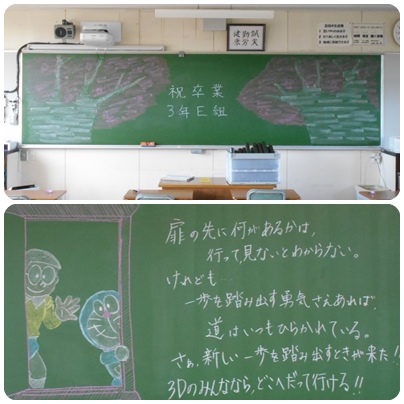 祝卒業
3年E組
扉の先に何があるかは、
行って、見ないとわからない。
けれども
一歩を踏み出す勇気さえあれば、
道はいつもひらかれている。
さぁ、新しい一歩を踏み出すときが来た!!
3Dのみんななら、どこへだって行ける!!